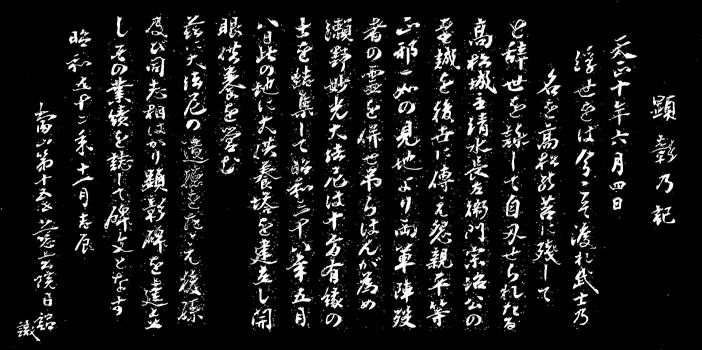 顕彰乃記
天正十年六月四日
浮世をば今こそ渡れ武士乃
名を高松の苔に残して
と辞世を詠して自刃せられたる
高松城主清水長左衛門宗治公の
至誠を後世に傳え怨親平等
正邪一如の見地より両軍陣歿
者の霊を併せ弔らはんが為め
瀬野妙光大法尼は十方有縁の
士を結集して昭和三十八年五月
八日此の地に大供養塔を建立し開
眼供養を営む
茲に大法尼の遺徳を
及び同志相はかり顕彰碑を建立
しその業績を誌して碑文となす
昭和五十二年十二月吉辰
當山第十五 院日 識